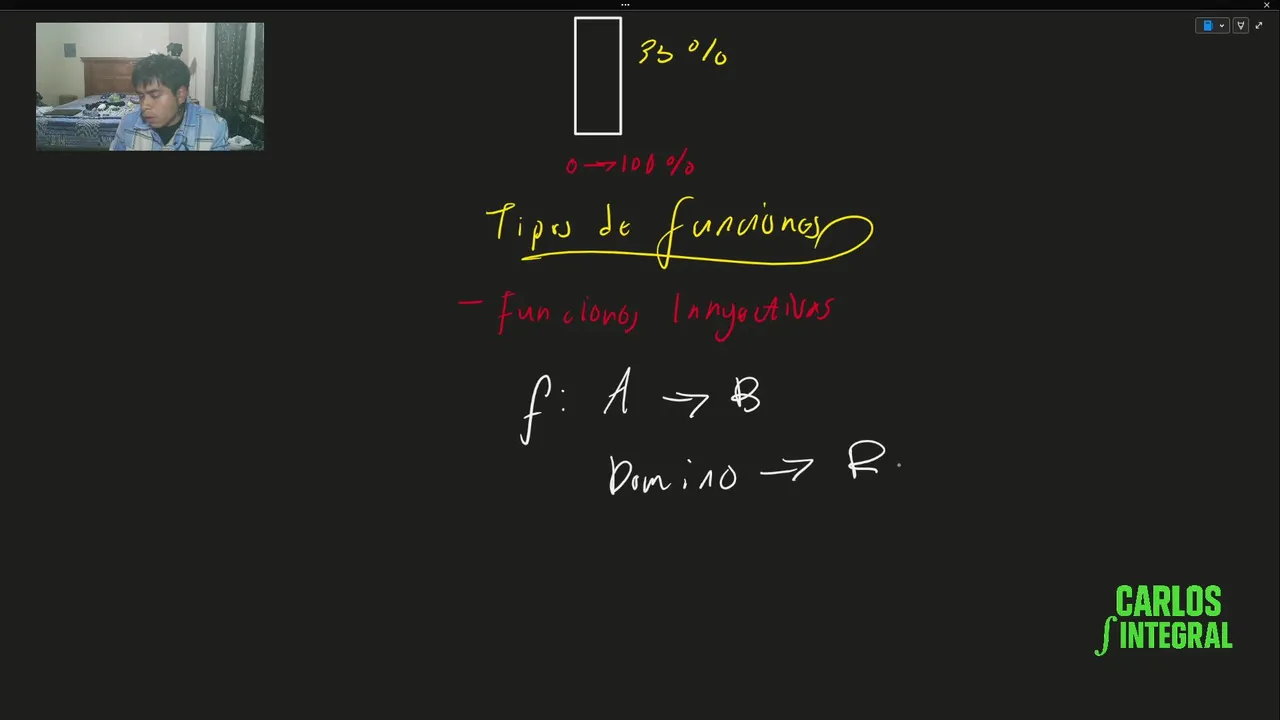 35 %
0 → 100 %
Tipos de funciones
- Funciones Innyectivas
f: A → B
Domino → R
CARLOS
∫ INTEGRAL